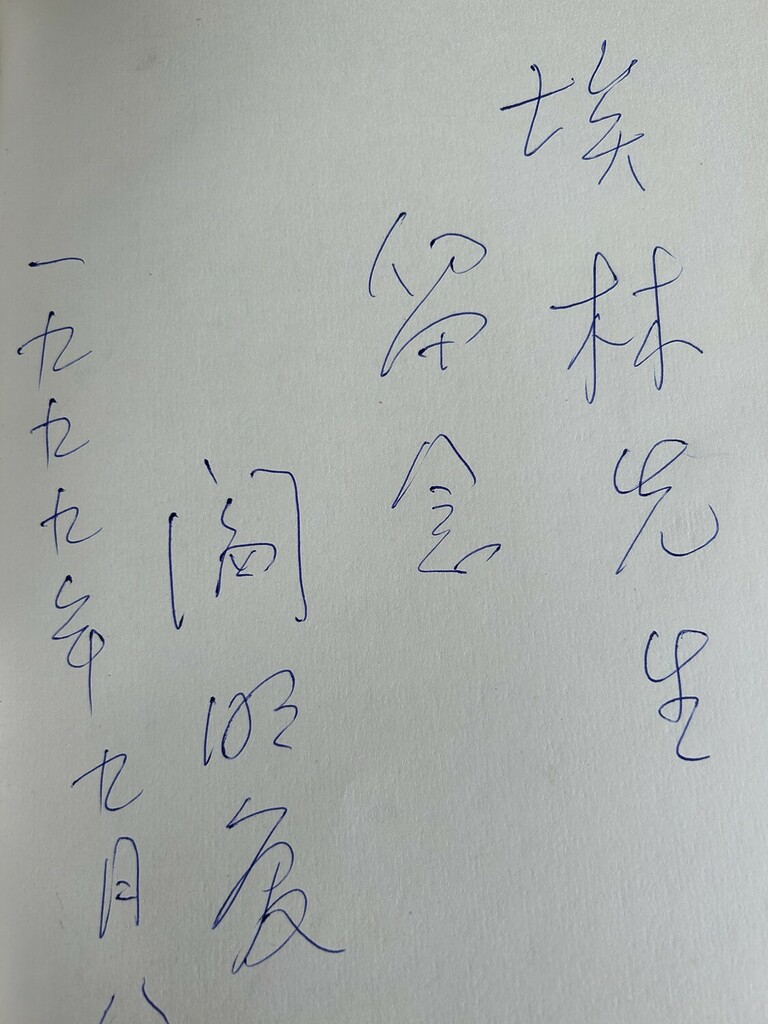 埃林先生
留念
阎明复
一九九九年九月八